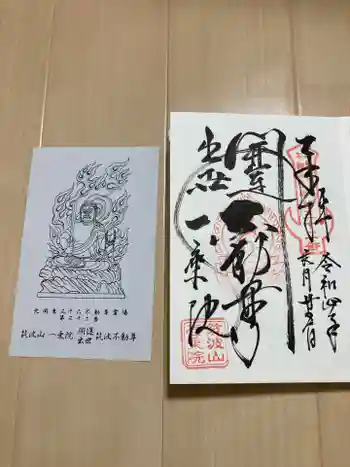 北関東三十六不動尊霊場
第三十三番
筑波山 一乗院 開運出世 筑波不動尊
奉拝
令和四年
六月廿五日
開運
出世
不動尊
一乗院
筑波山
一乗院